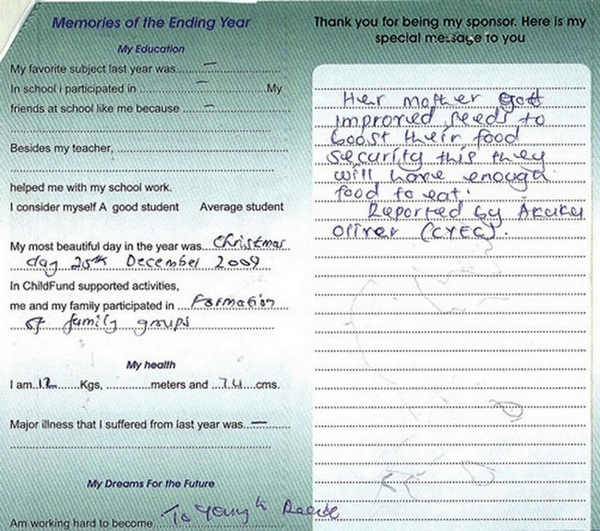 Memories of the Ending Year
My Education
My favorite subject last year was..... –
In school i participated in ..... – ..... My
friends at school like me because ..... –
Besides my teacher, .....
helped me with my school work.
I consider myself A good student Average student
My most beautiful day in the year was... Christmas
day 25th December 2009
In ChildFund supported activities,
me and my family participated in ... Formation
of family groups
My health
I am 12 ..... Kgs, ..... meters and ... 74 .. cms.
Major illness that I suffered from last year was... –
My Dreams For the Future
Am working hard to become ... To Young to Decide
Thank you for being my sponsor. Here is my
special message to you
Her mother gott
improved seeds to
boost their food
security this they
will have enough
food to eat.
Reported by
Oliver (CYEC).